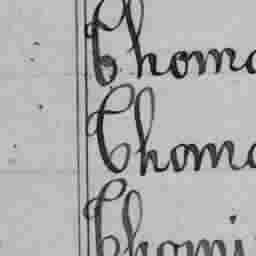 Thoma
Thoma
Thomi